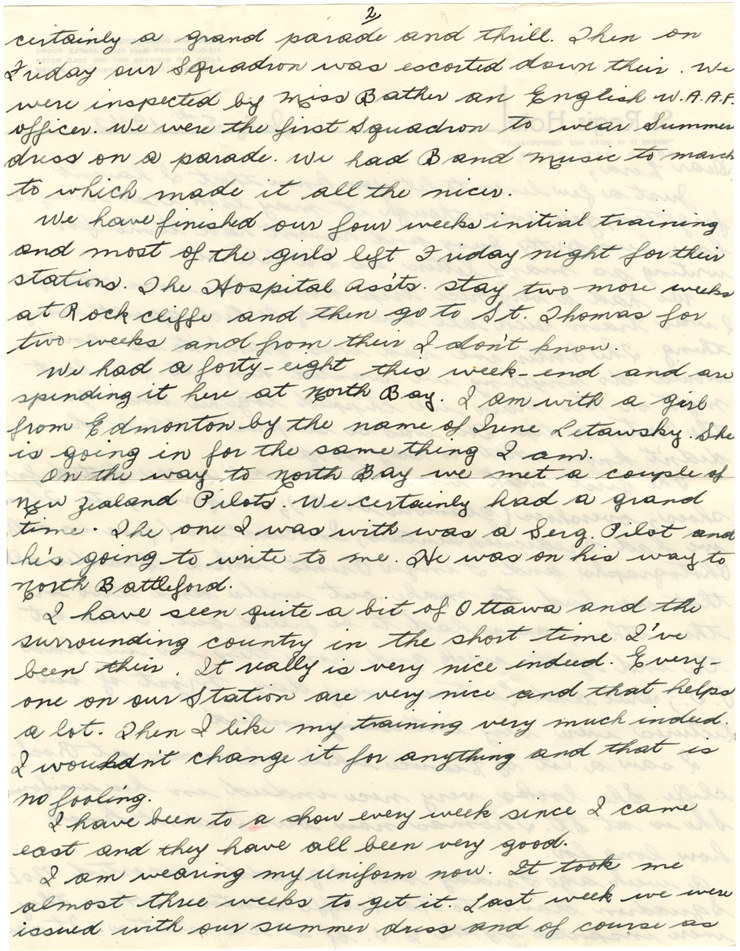 2
certainly a grand parade and thrill. Then on
Friday our Squadron was escorted down their. We
were inspected by Miss Bather an English W.A.A.F.
officer. We were the first Squadron to wear Summer
dress on a parade. We had Band Music to march
to which made it all the nicer.
We have finished our four weeks initial training
and most of the girls left Friday night for their
stations. The Hospital Ass'ts. stay two more weeks
at Rockcliffe and then go to St. Thomas for
two weeks and from their I don't know.
We had a forty-eight this week-end and are
spending it here at North Bay. I am with a girl
from Edmonton by the name of Irene Letawsky. She
is going in for the same thing I am.
On the way to North Bay we met a couple of
New Zealand Pilots. We certainly had a grand
time. The one I was with was a Serg. Pilot and
he's going to write to me. He was on his way to
North Battleford.
I have seen quite a bit of Ottawa and the
surrounding country in the short time I've
been their. It really is very nice indeed. Every-
one on our Station are very nice and that helps
a lot. Then I like my training very much indeed.
I wouldn't change it for anything and that is
no fooling.
I have been to a show every week since I came
east and they have all been very good.
I am wearing my uniform now. It took me
almost three weeks to get it. Last week we were
issued with our summer dress and of course as